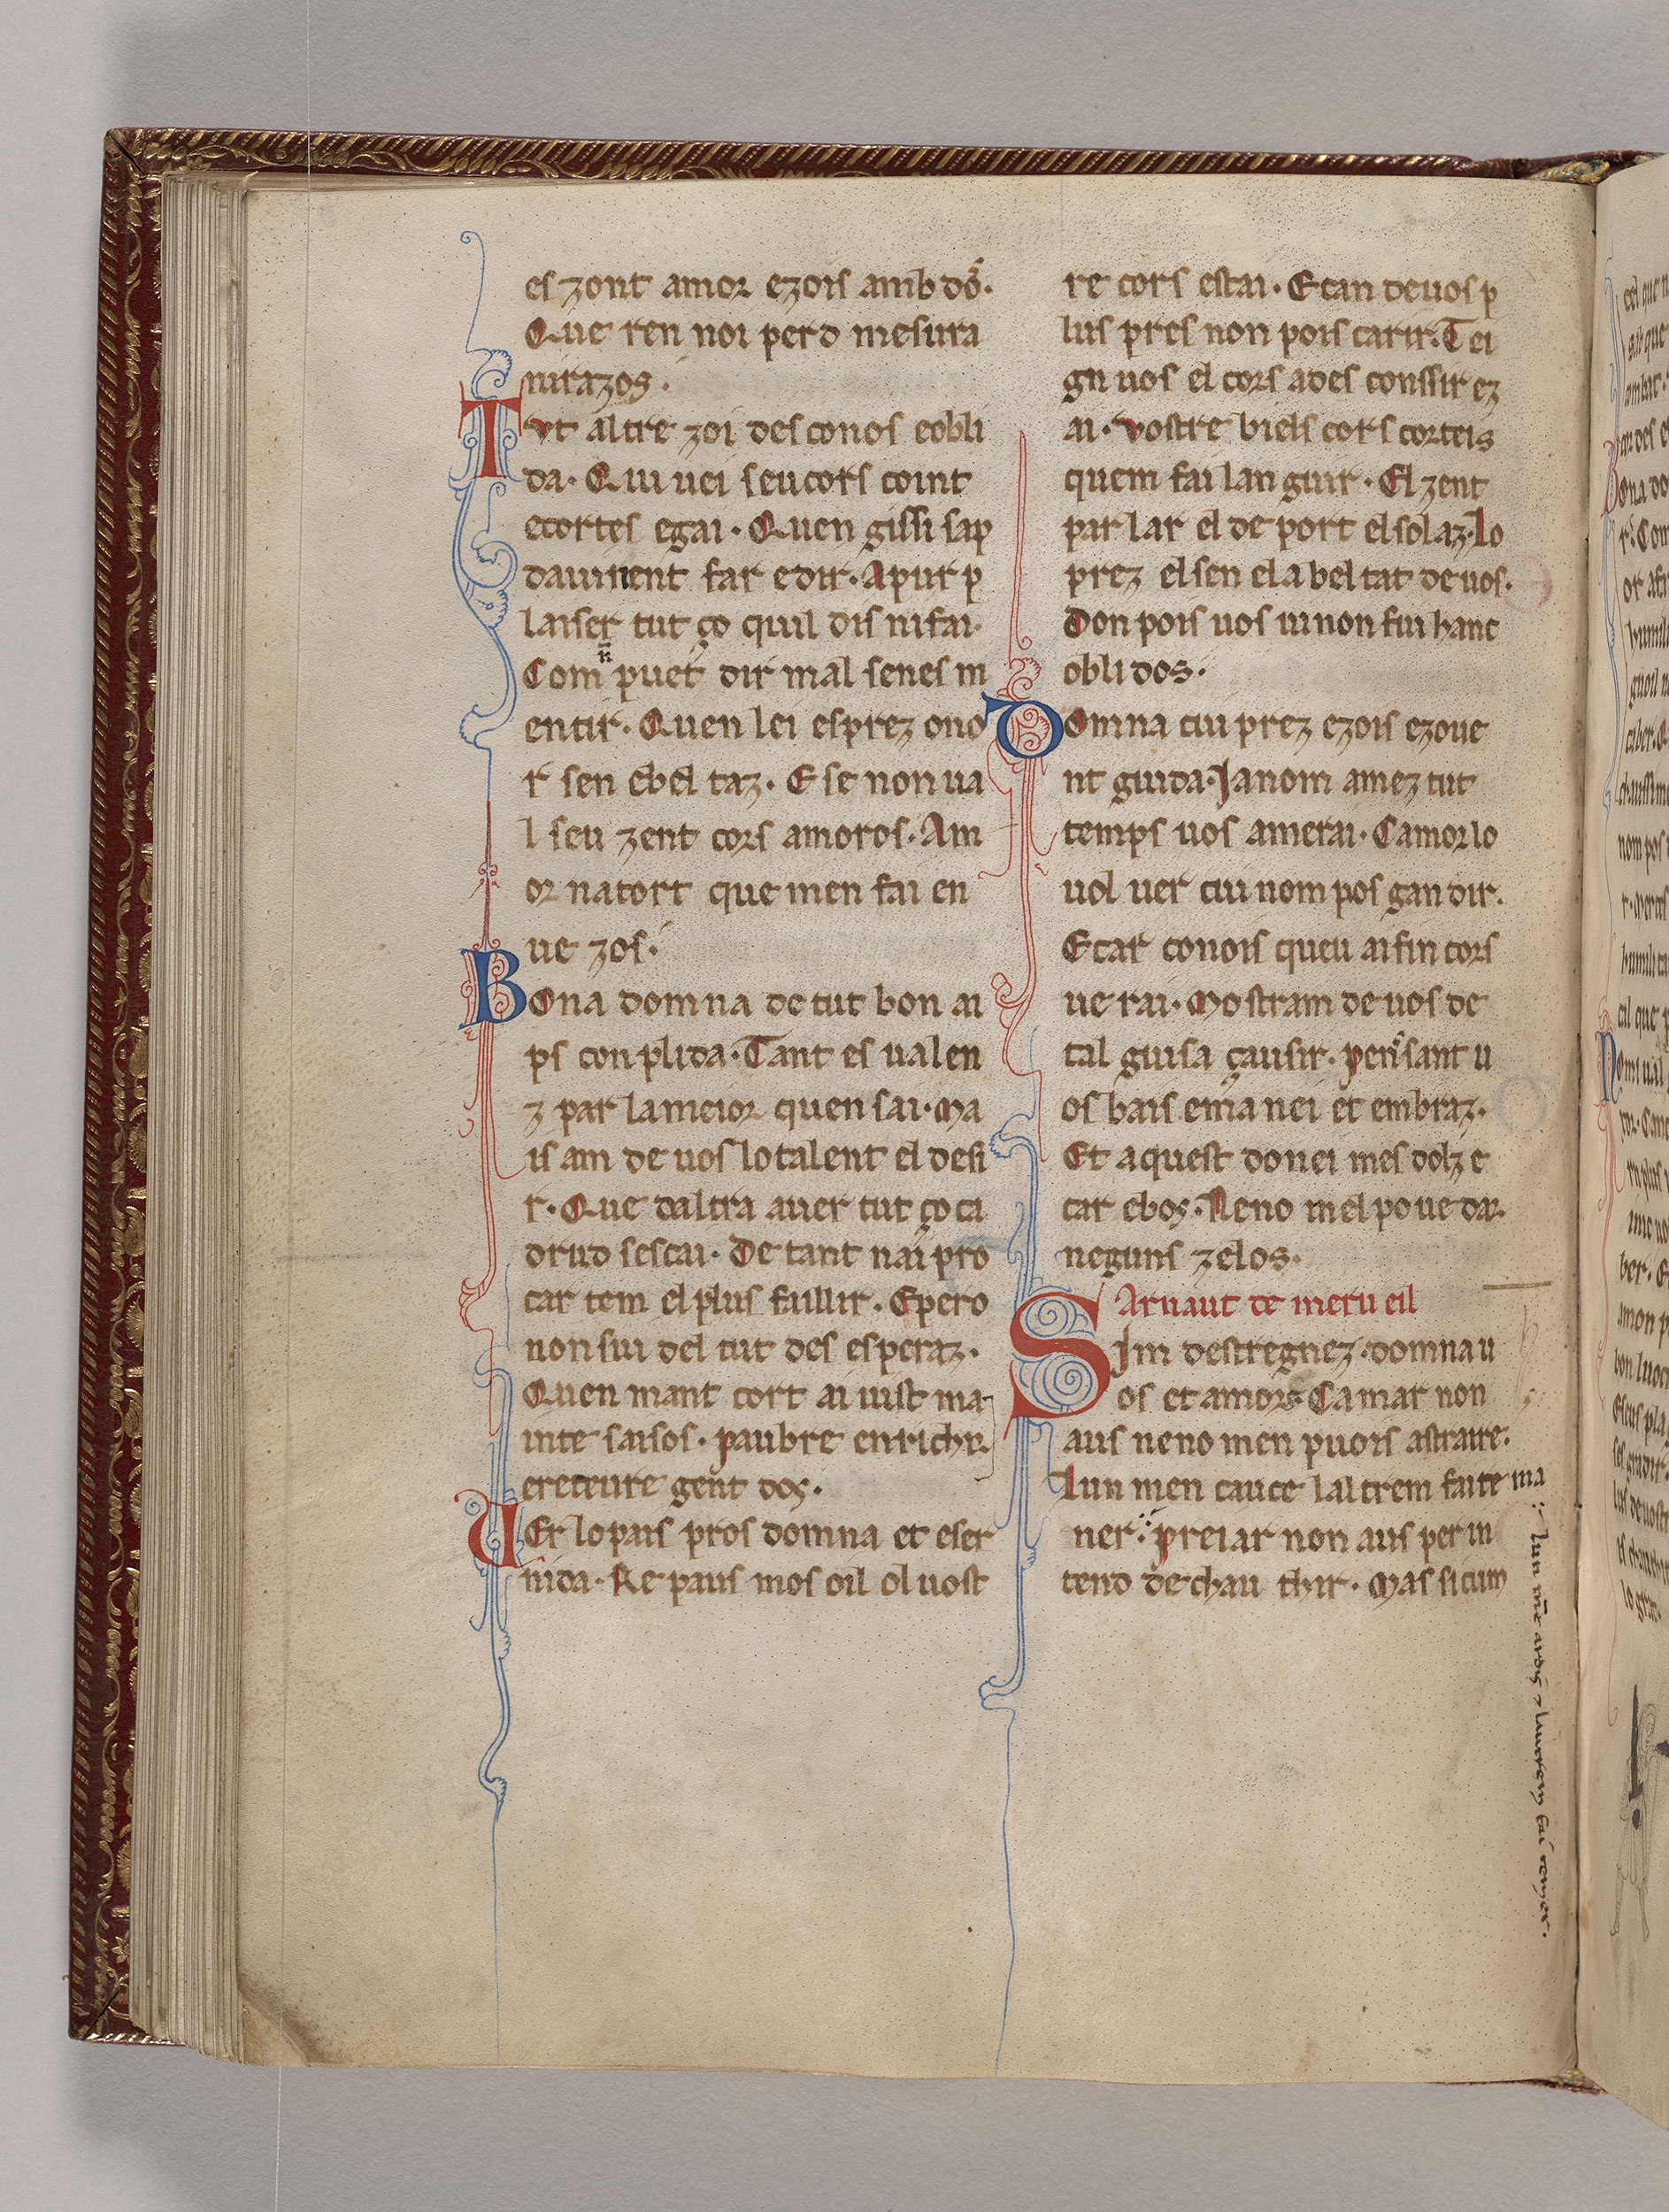 es zont amor ezois amb dos̄.
Que ren noi perd mesura
ni razos.
Tvt altre zoi des conos eobli
da. Qui uei seu cors coint
ecortes egai. Quen gissi sap
dauinent far edir. A pur p
laiser tut ço quil dis ni fai.
Com n̄ puet dir mal senes m
entir. Quen lei es prez ono
r sen ebel taz. E se non ua
l seu zent cors amoros. Am
or na tort que men fai en
ue zos.
BOna domna de tut bon ai
ps conplida. Tant es ualen
z par la meior quen sai. Ma
is am de uos lo talent el desi
r. Que daltra auer tut ço ca
drud sescai. De tant nai pro
car tem el plus fullir. Epero
non sui del tut des esperaz.
Quen mant cort ai uist ma
inte saisos. paubre enrichir
ereteure gent dos.
UEr lo pais pros domna et eser
nida. Re paus mos oil ol uost
re cors estai. E can de uos p
lus pres non pois carir. Tei
gn uos el cors ades conssir ez
ai. vostre biels cors corteis
quem fai lan guir. El zent
par lar el de port el solaz. Lo
prez el sen ela bel tat de uos.
Don pois uos ui non fui hanc
obli dos.
DOmna cui prez ezois ezoue
nt guida. Ja nom amez tut
temps uos amerai. Camor lo
uol uer cui nom pos gan dir.
E car conois queu ai fin cors
ue rai. Mostram de uos de
tal guisa çausir. pensant u
os bais ema nei et embraz.
Et aquest donei mes dolz e
car ebos. Neno mel po ue dar
neguns zelos.
Arnaut de meru eil
SJm destregnez domna u
os et amors. Ca mar non
aus neno men puois astraire.
Lun men cauce laltrem faite ma
ner. preiar non aus per in
tend de chau thir. Mas si cum